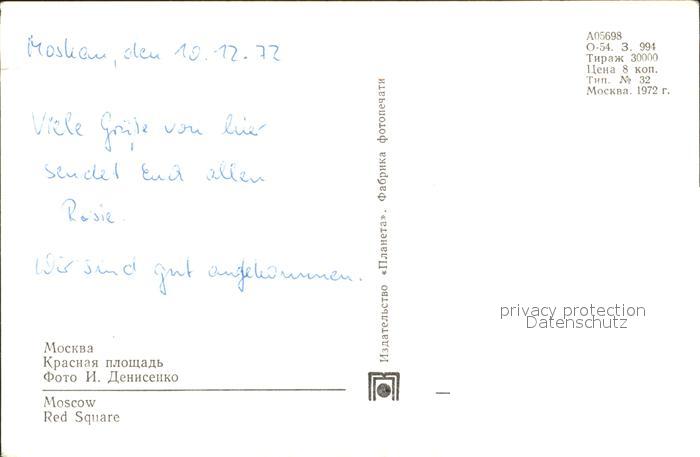 Moskau, den 10.12.72
Viele Grüße von hier
sendet Euch allen
Rosie.
Wir sind gut angekommen.
Москва
Красная площадь
Фото И. Денисенко
Moscow
Red Square
Издательство «Планета». Фабрика фотопечати
А05698
О-54. З. 994
Тираж 30000
Цена 8 коп.
Тип. № 32
Москва. 1972 г.
privacy protection
Datenschutz